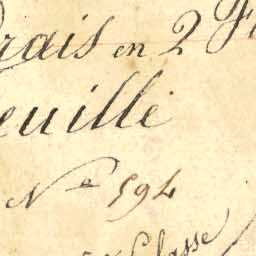 rais en 2 F
euille
Nº 594
Classe